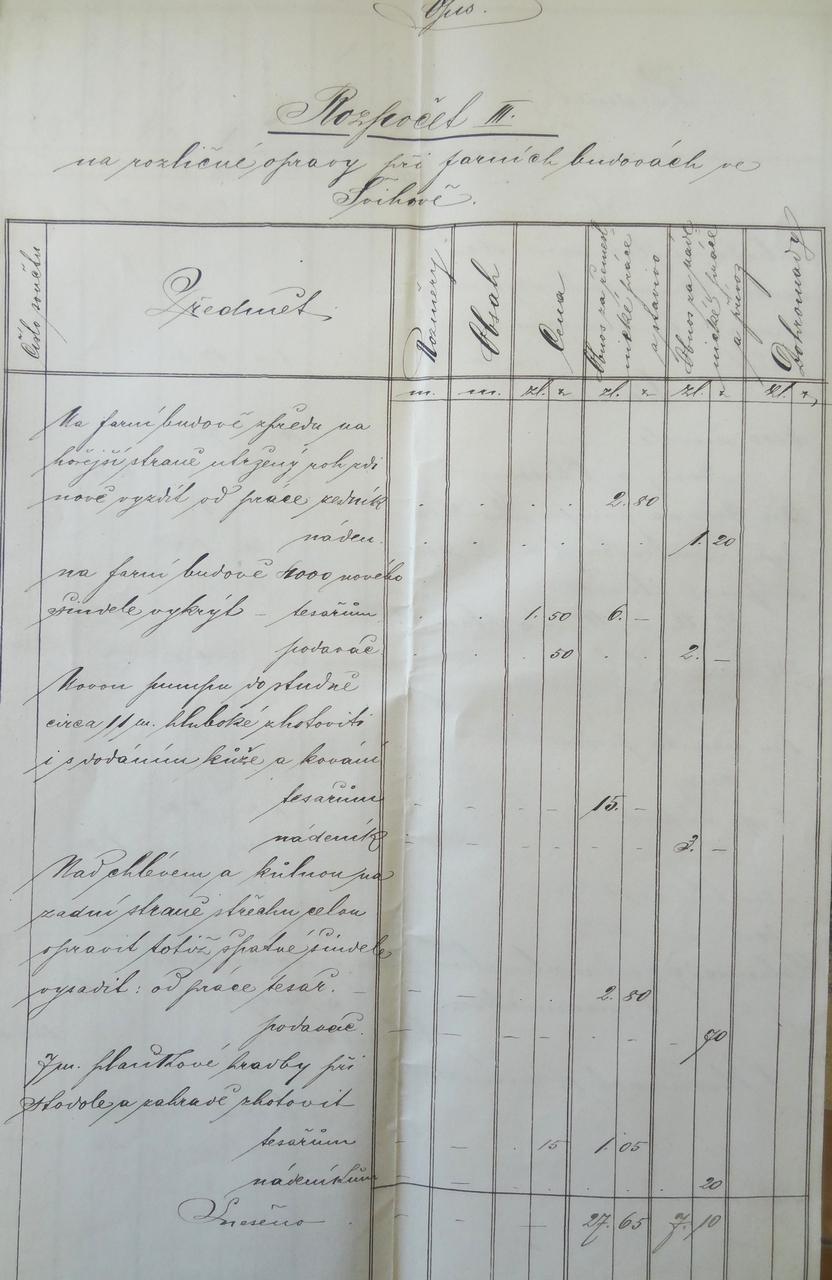 Opis.
Rozpočet III.
na rozličné opravy při farních budovách ve
Švihově.
Číslo součtu
Předmět
Rozměry
Obsah
Cena
Obnos za řemesl
nické práce
a stavivo
Obnos za nádé
nické práce
a přívoz
Dohromady
m. m. zl. kr zl. kr zl. kr zl. kr
Na farní budově zpředu na
hořejší straně utržený roh zdi
nově vyzdít od práce zedník . . . . 2. 80
náden. . . . . . . 1. 20
na farní budově 4000 nového
šindele vykrýt – tesařům . . 1. 50 6. –
podavač . . 50 . . 2. –
Novou pumpu do studně
circa 11 m. hluboké zhotoviti
i s dodáním kůže a kování
tesařům – – – – 15. –
nádeník – – – – – – 3. –
Nad chlévem a kůlnou na
zadní straně střechu celou
opravit totiž špatné šindele
vysadit: od práce tesař. – – – . . 2. 80
podavač. – – – . – – – 70
7 m. plaňkové hradby při
stodole a zahradě zhotovit
tesařům – – . 15 1. 05
nádeníkům – – . . . . 20
Sneseno . – – – 27. 65 7. 10